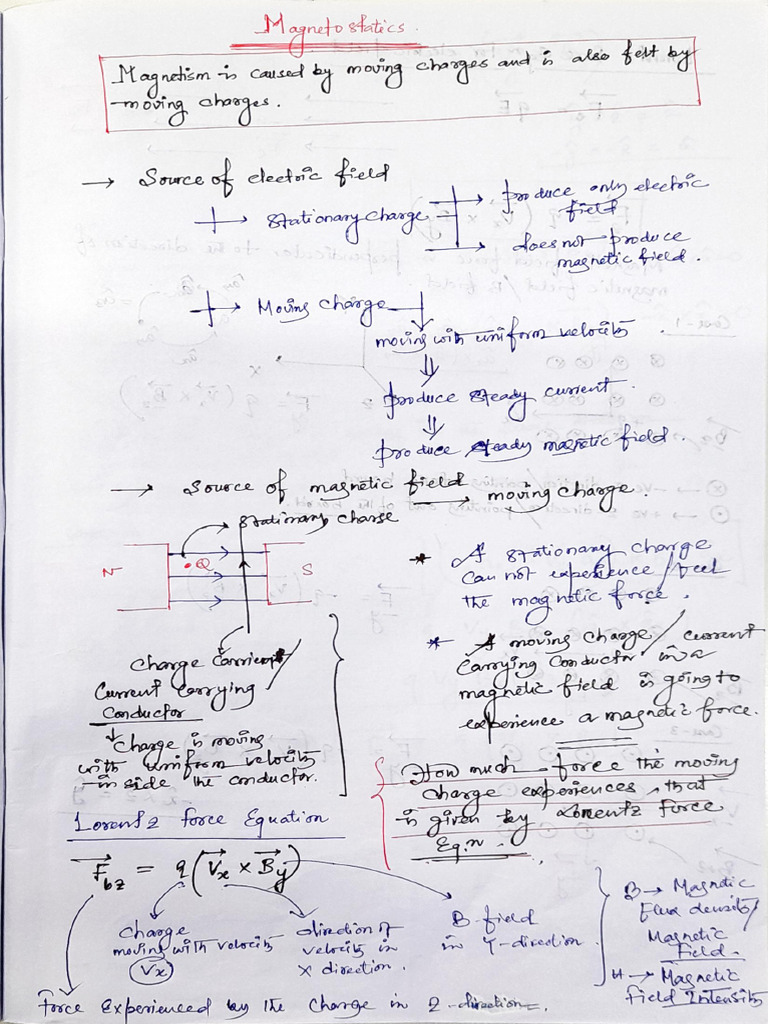 Magnetostatics.
Magnetism is caused by moving charges and is also felt by
moving charges.
→ Source of electric field
→ Stationary charge
→ produce only electric
field
→ does not produce
magnetic field.
→ Moving charge
moving with uniform velocity.
⇓
produce steady current.
⇓
produce steady magnetic field.
→ Source of magnetic field → moving charge.
stationary charge
N Q S
* A stationary charge
can not experience/feel
the magnetic force.
* A moving charge/current
carrying conductor in a
magnetic field is going to
experience a magnetic force.
charge carrier/
current carrying
conductor
↓ charge is moving
with uniform velocity
in side the conductor.
How much force the moving
charge experiences, that
is given by Lorentz force
Eq.n.
Lorentz force Equation
F⃗bz = q(V⃗x × B⃗y)
charge
moving with velocity
Vx
direction of
velocity in
x direction.
B-field
in Y-direction.
B → Magnetic
Flux density/
Magnetic
Field.
H → Magnetic
Field Intensity
Force Experienced by the charge in Z-direction.